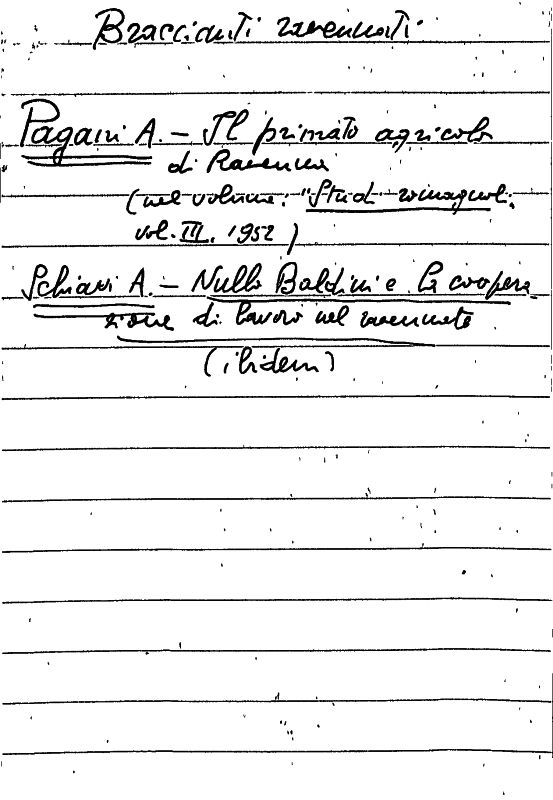 Braccianti ravennati
Pagani A. - Il primato agricolo
di Ravenna
(nel volume: "Studi romagnoli,
vol. III, 1952)
Schiavi A. - Nullo Baldini e la coopera-
zione di lavoro nel ravennate
(ibidem)